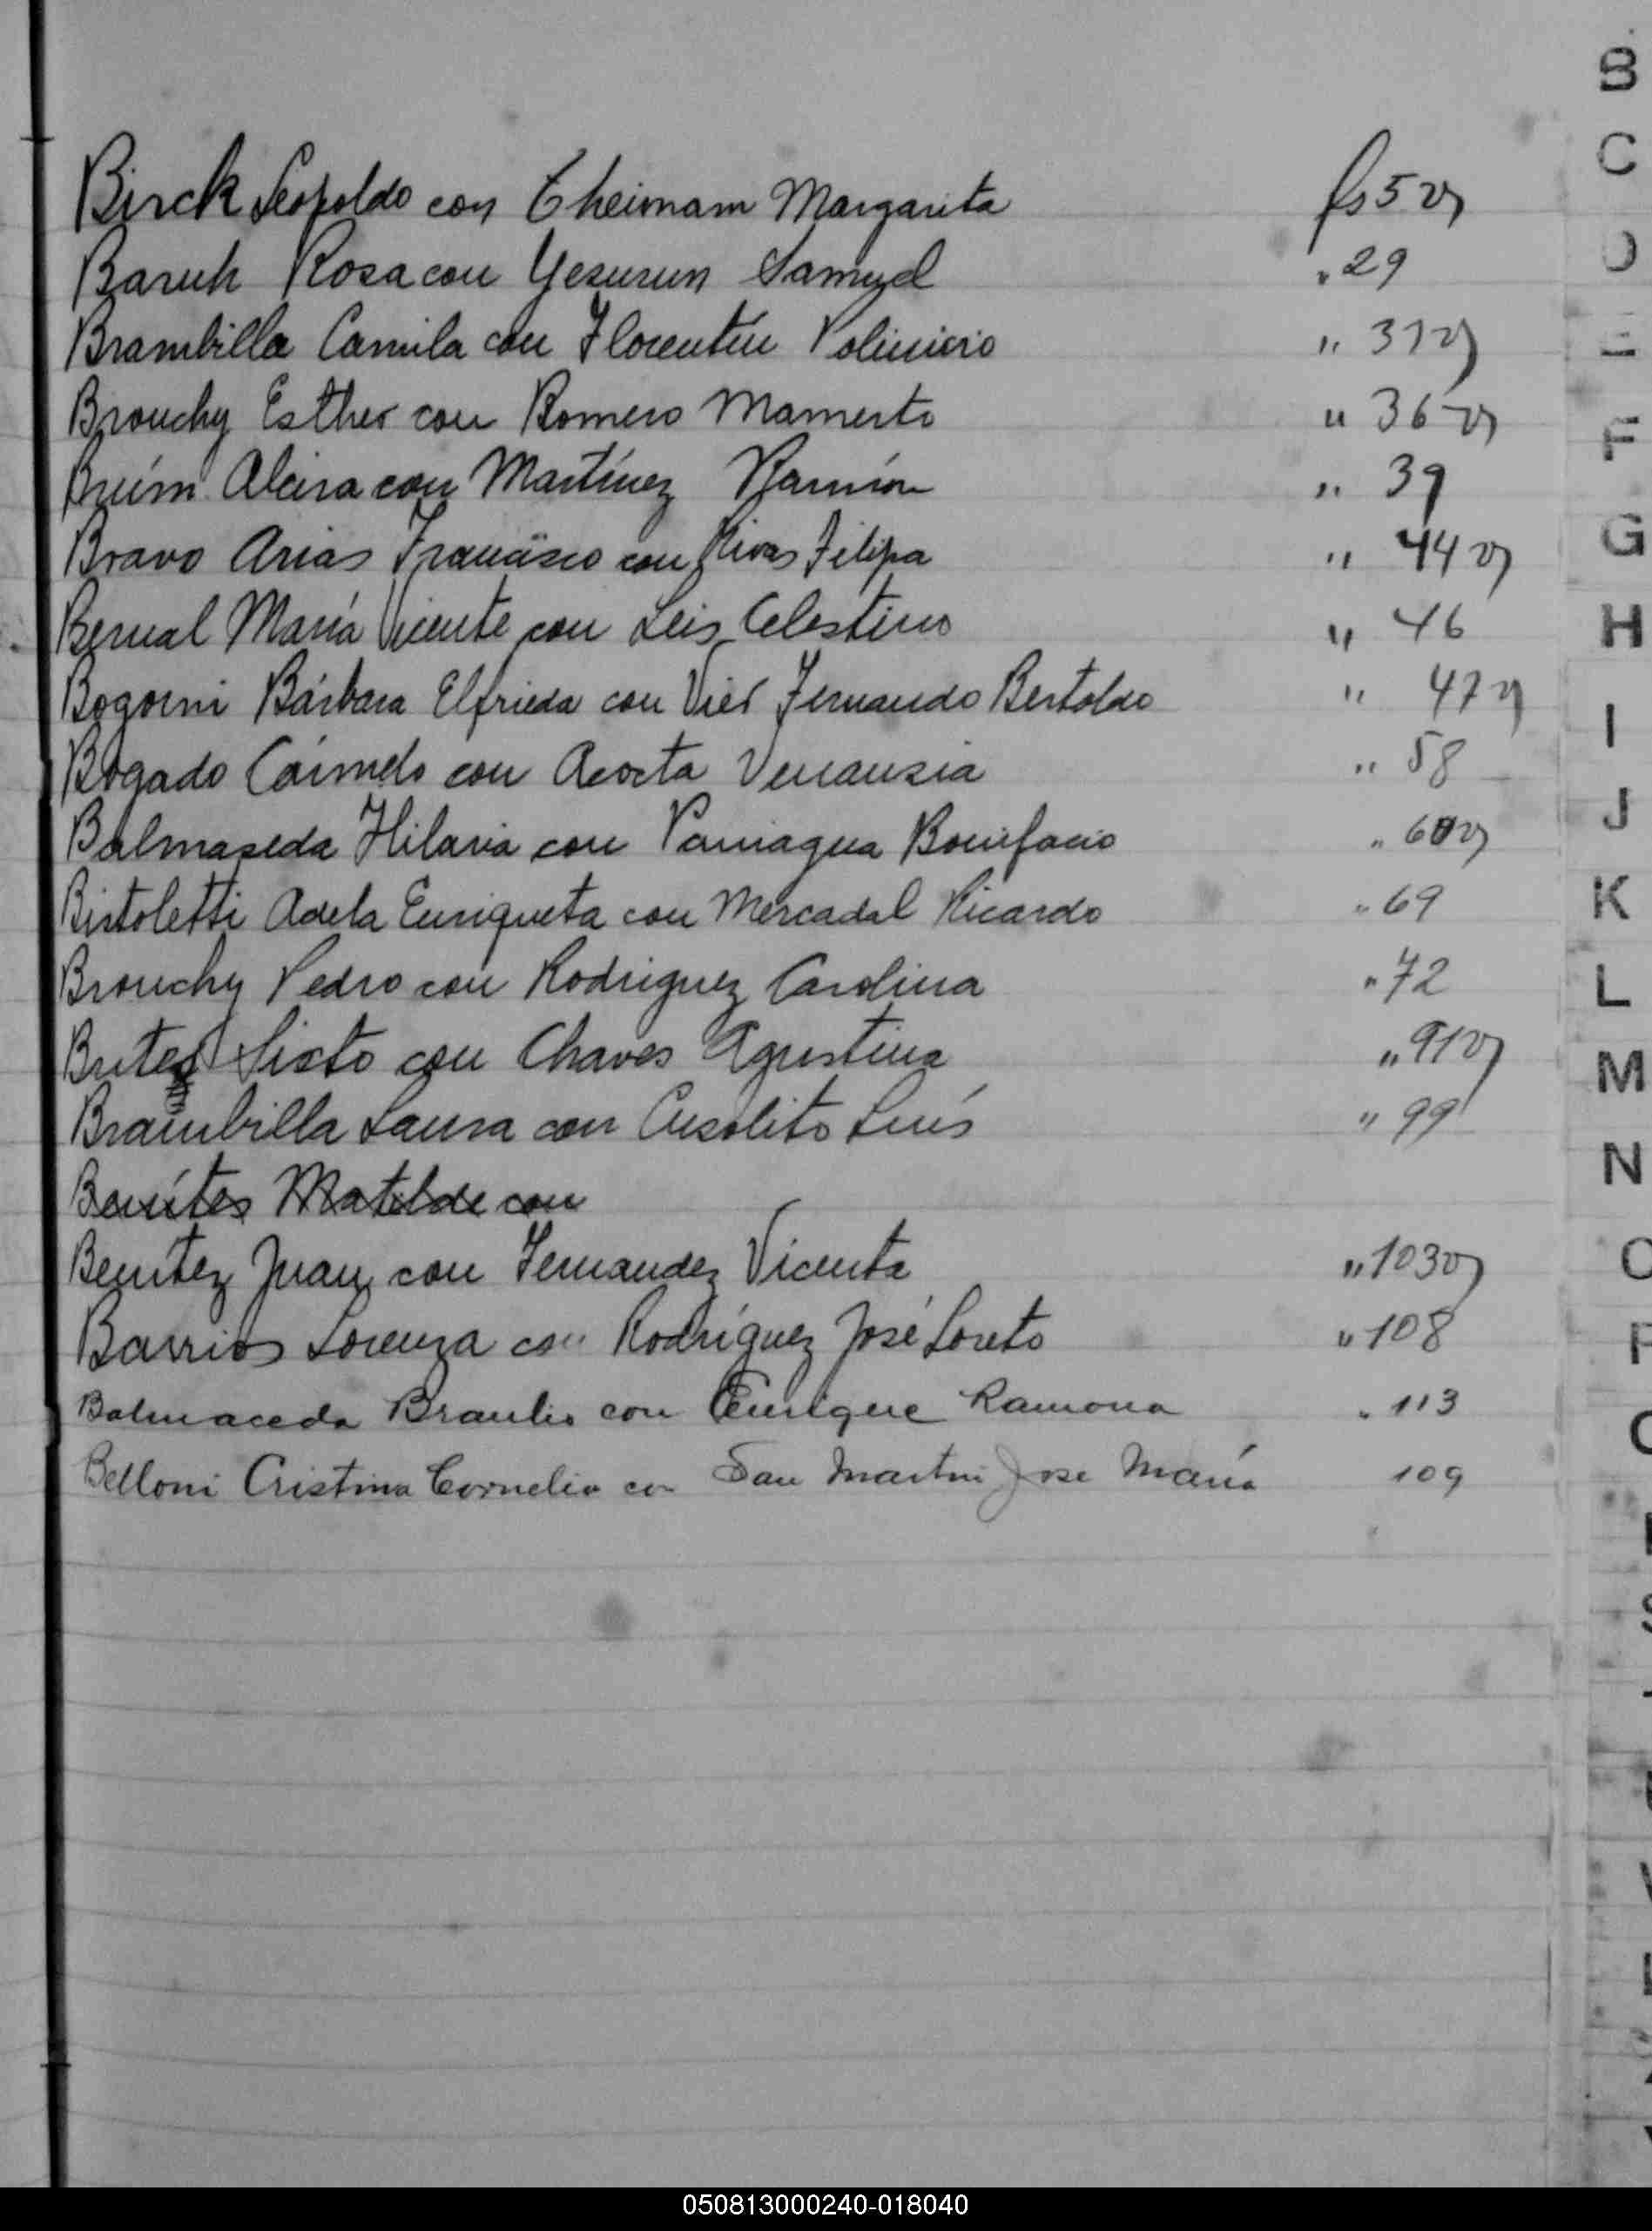 Birck Leopoldo con Theimam Margarita fs 5 v
Baruh Rosa con Yesurun Samuel " 29
Brambilla Camila con Florentin Polinicio " 31 v
Brouchy Esther con Romero Mamerto " 36 v
Bruím Alcira con Martínez Ramón " 39
Bravo Arias Francisco con Rivas Filipa " 44 v
Bernal María Vicente con Leis Celestino " 46
Bogorni Bárbara Elfrieda con Vier Fernando Bertoldo " 47 v
Bogado Carmelo con Acosta Venansia " 58
Balmaseda Hilaria con Paniagua Bonifacio " 60 v
Bistoletti Adela Enriqueta con Mercadal Ricardo " 69
Brouchy Pedro con Rodriguez Carolina " 72
Brites Sixto con Chaves Agustina " 91 v
Brambilla Laura con Cusolito Luís " 99
Benítes Matilde con
Benítez Juan con Fernandez Vicenta " 103 v
Barrios Lorenza con Rodríguez José Loreto " 108
Balmaceda Braulio con Enrique Ramona " 113
Belloni Cristina Cornelia con San Martin Jose María 109
B
C
D
E
F
G
H
I
J
K
L
M
N
O
P
Q
S
050813000240-018040